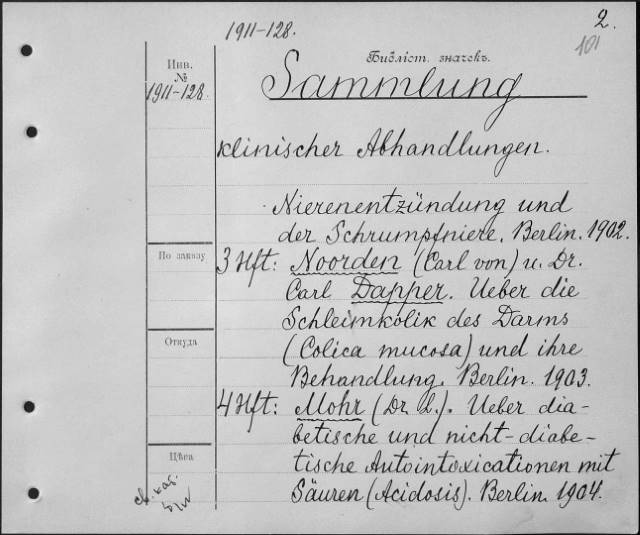 1911-128.
2.
101
Библіот. значекъ.
Инв.
№
1911-128.
Sammlung
klinischer Abhandlungen.
Nierenentzündung und
der Schrumpfniere. Berlin. 1902.
По заказу
3 Hft: Noorden (Carl von) u. Dr.
Carl Dapper. Ueber die
Schleimkolik des Darms
Откуда
(Colica mucosa) und ihre
Behandlung. Berlin. 1903.
4 Hft: Mohr (Dr. L.). Ueber dia-
betische und nicht-diabe-
Цѣна
tische Autointoxicationen mit
Säuren (Acidosis). Berlin. 1904.